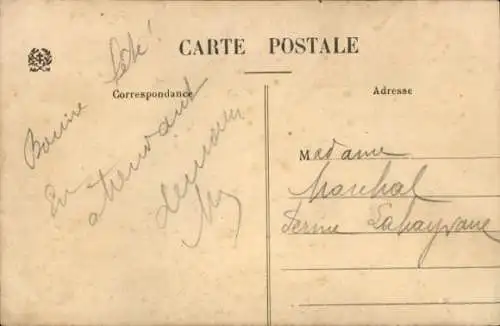 CARTE POSTALE
Correspondance
Adresse
Bonne fête!
En attendant
demain
Madame
Marchal
Ferme